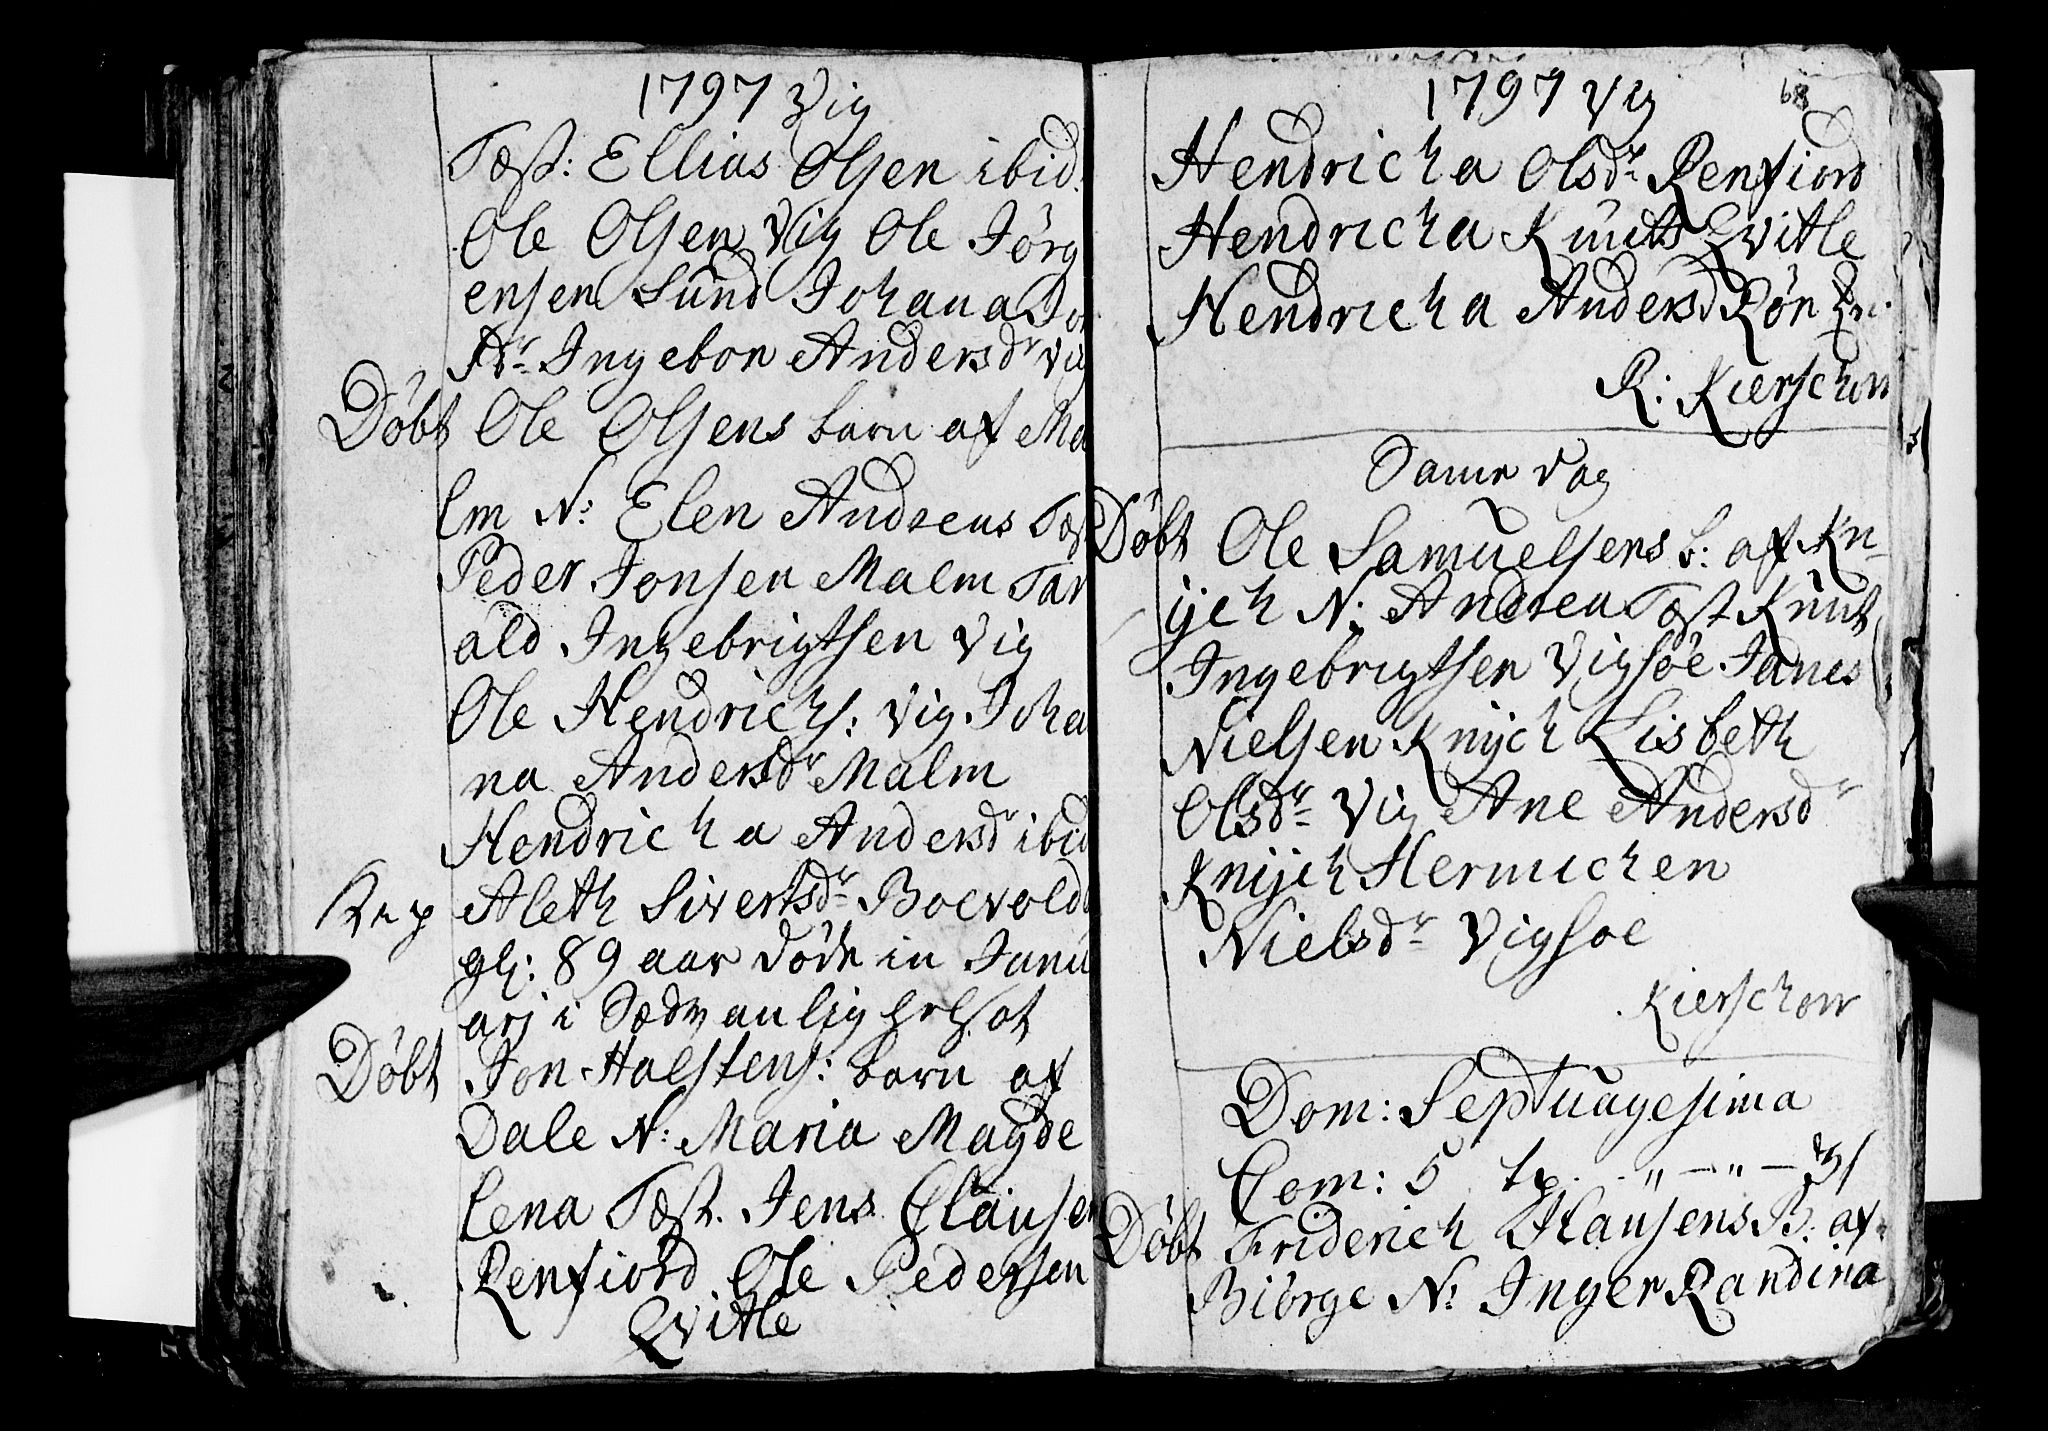 1797 Vig
Test: Ellias Olsen ibid.
Ole Olsen Vig Ole Jörg
ensen Sund Johana Jon
Dr Ingebor Andersdr Vig
Döbt Ole Olsens barn af Ma
lm N: Elen Andreas Test
Peder Jonsen Malm Tar
ald Ingebrigtsen Vig
Ole Hendrichs: Vig Joha
na Andersdr Malm
Hendricha Andersdr ibid
Aleth Sivertsdr Boevold
gl: 89 aar döde in Janu
arj i Sædvanlig
Döbt Jon Halstens: barn af
Dale N: Maria Magde
lena Test. Jens Clausen
Renfiord Ole Pedersen
Qvitle
1797 Vig 68
Hendricha Olsdr Renfiord
Hendricha Knuts Qvitle
Hendricha Andersd Rön
R: Kierschow
Same Dag
Döbt Ole Samuelsens b: af Kn-
ijch N: Andrea Test Knut
Ingebrigtsen Vigsöe Janes
Nielsen Knijch Lisbeth
Olsdr Vig Ane Andersdr
Knijch Hermichen
Nielsdr Vigsoe
Kierschow
Dom: Septuagesima
Com: 5 tp. " — " — 31
Döbt Friderich Hansens B: af
Biörge N: Inger Randina